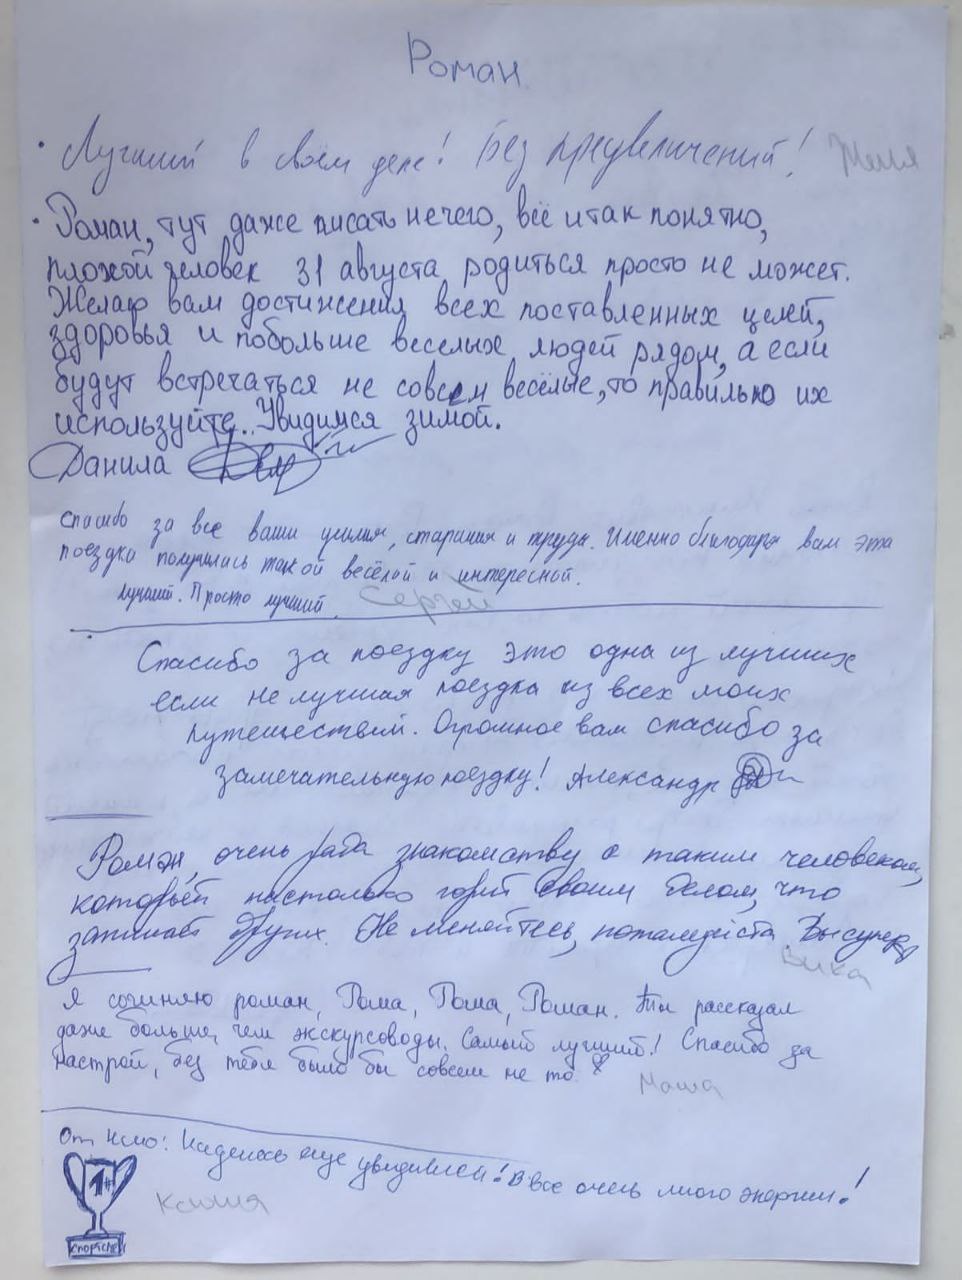 Роман.
• Лучший в своём деле! Без преувеличений! Женя
• Роман, тут даже писать нечего, всё итак понятно,
плохой человек 31 августа родиться просто не может.
Желаю вам достижения всех поставленных целей,
здоровья и побольше веселых людей рядом, а если
будут встречаться не совсем весёлые, то правильно их
используйте.. Увидимся зимой.
Данила
Спасибо за все ваши усилия, старания и труды. Именно благодаря вам эта
поездка получилась такой весёлой и интересной.
лучший. Просто лучший Сергей
Спасибо за поездку это одна из лучших
если не лучшая поездка из всех моих
путешествий. Огромное вам спасибо за
замечательную поездку! Александр
Роман, очень рада знакомству с таким человеком,
который настолько горит своим делом, что
зажигает других. Не меняйтесь, пожалуйста. Вы супер
Вика
Я сочиняю роман, Рома, Рома, Роман. Ты рассказал
даже больше, чем экскурсоводы. Самый лучший! Спасибо за
настрой, без тебя было бы совсем не то.
Маша
От Надеюсь еще увидимся! В вас очень много энергии!
1#
Ксюша